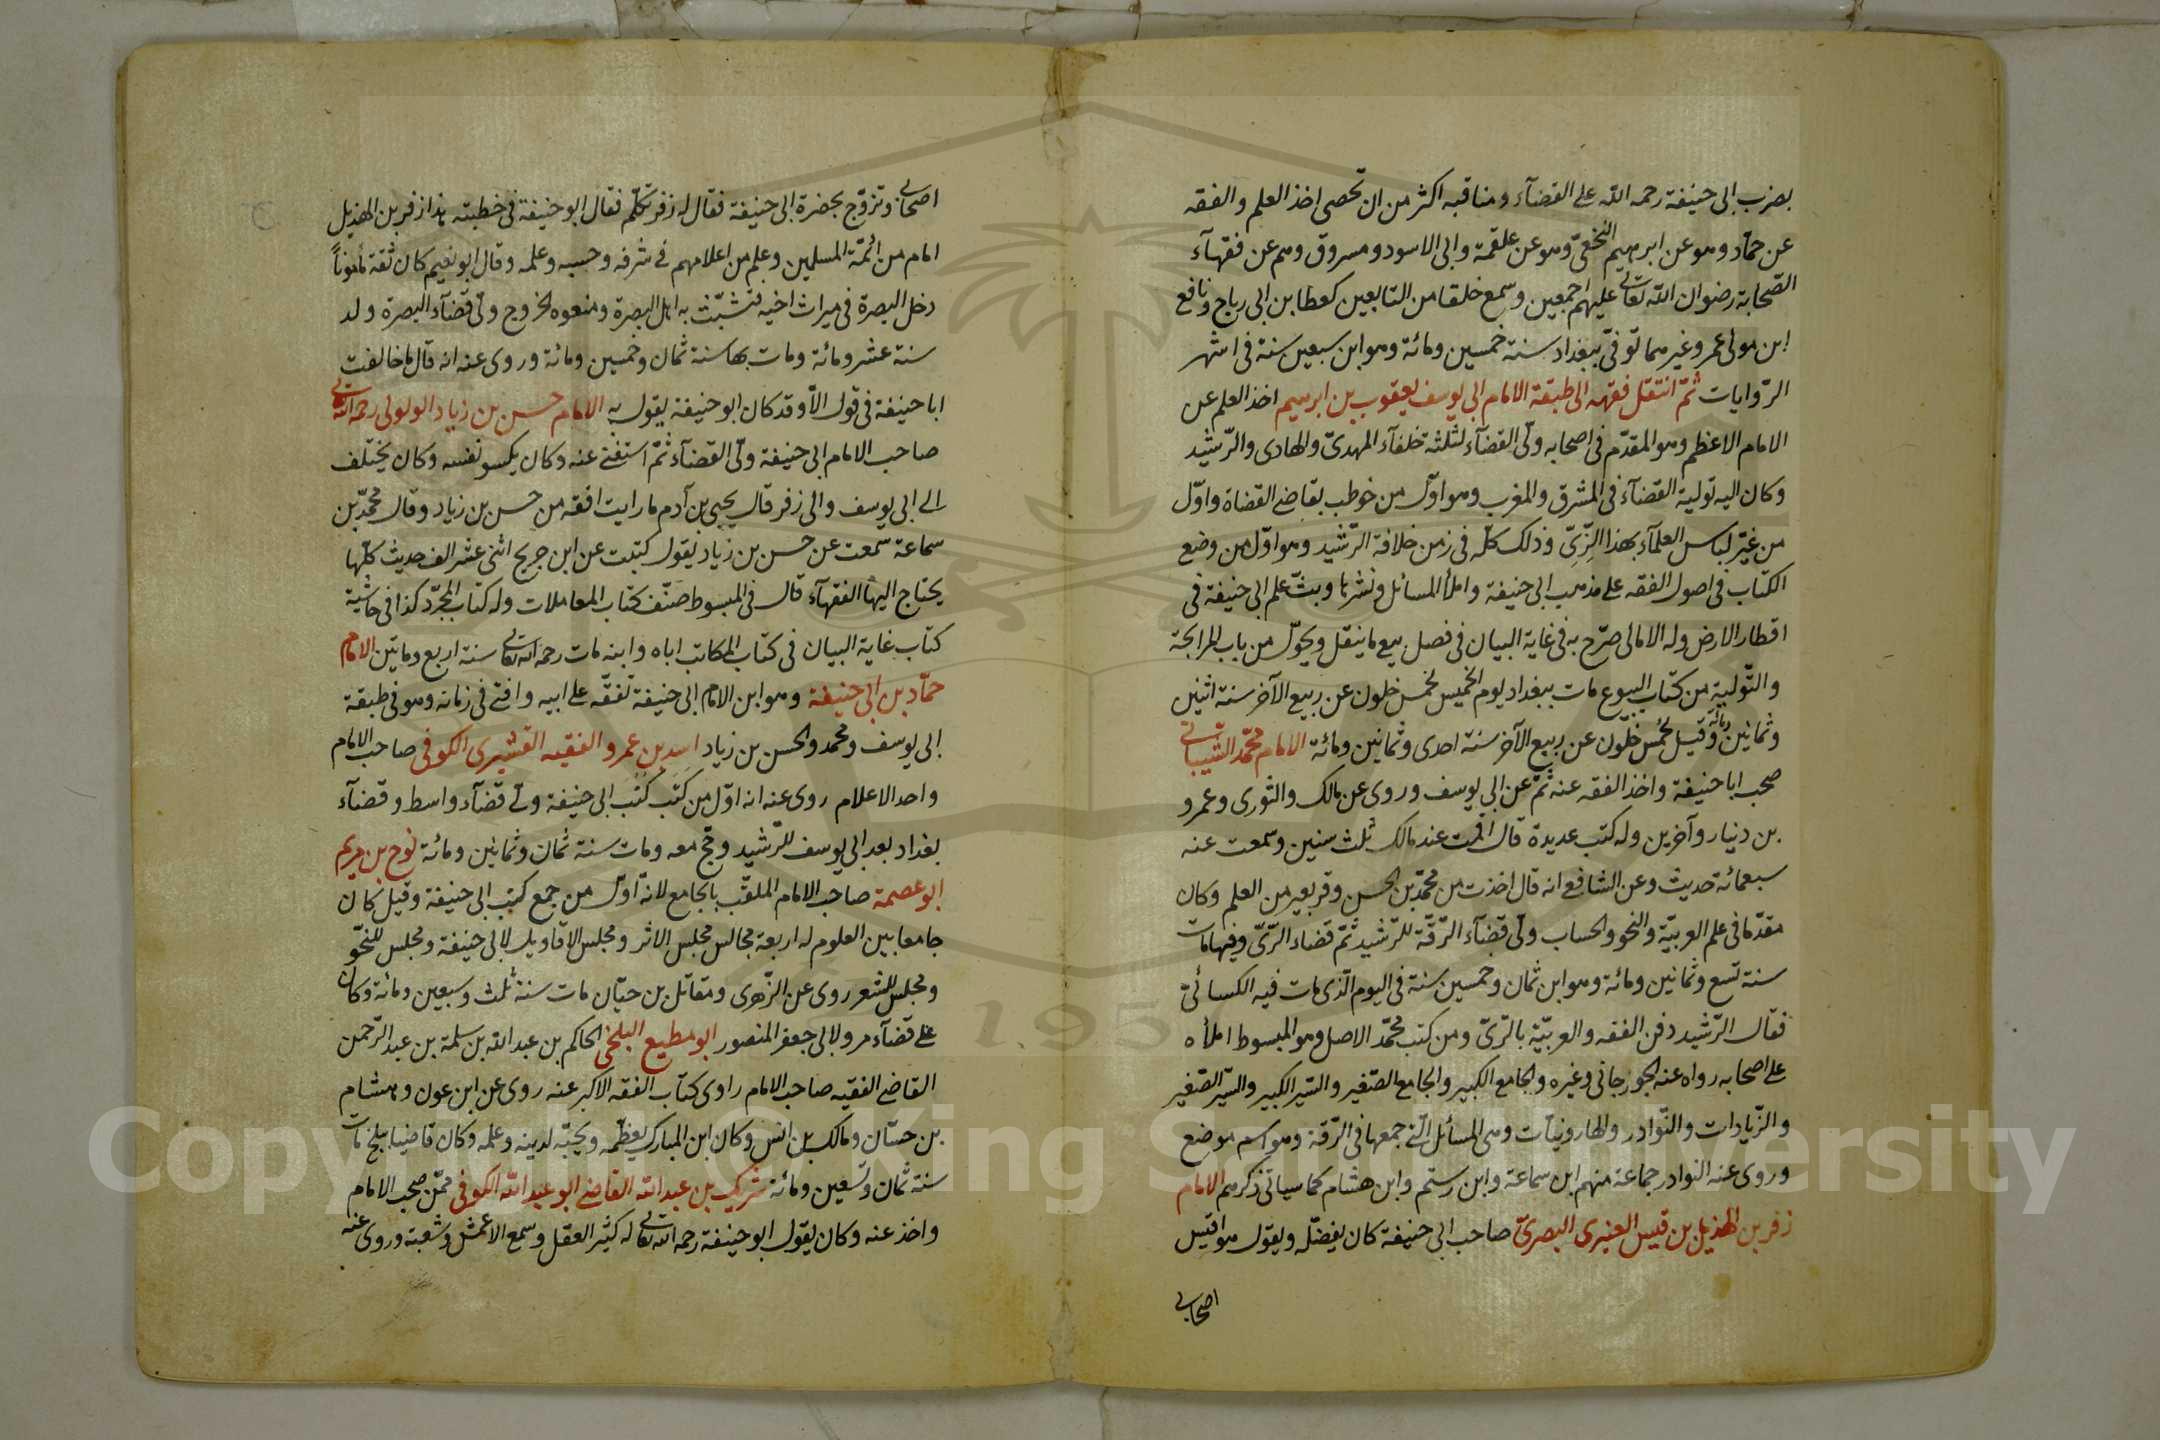 بضرب ابى حنيفة رحمه الله على القضآء ومناقبه اكثر من ان تحصى اخذ العلم والفقه
عن حمّاد وهو عن ابرهيم النخعىّ وهو عن علقمة وابى الاسود ومسروق وهم عن فقهآء
الصّحابة رضوان الله تعالى عليهم اجمعين وسمع خلقا من التابعين كعطا بن ابى رباح ونافع
ابن مولى عمر وغيرهما توفّى ببغداد سنة خمسين ومائة وهو ابن سبعين سنة فى اشهر
الرّوايات ثمّ انتقل فقهه الى طبقة الامام ابى يوسف يعقوب بن ابرهيم اخذ العلم عن
الامام الاعظم وهو المقدّم فى اصحابه ولّى القضآء لثلثة خلفآء المهدىّ والهادى والرّشيد
وكان اليه تولية القضآء فى المشرق والمغرب وهو اوّل من خوطب بقاضى القضاة واوّل
من غيّر لباس العلمآء بهذا الزّىّ وذلك كلّه فى زمن خلافة الرّشيد وهو اوّل من وضع
الكتاب فى اصول الفقه على مذهب ابى حنيفة واملأ المسائل ونشرها وبثّ علم ابى حنيفة فى
اقطار الارض وله الامالى صرّح به فى غاية البيان فى فصل بيع ما ينقل ويحوّل من باب المرابحة
والتّولية من كتاب البيوع مات ببغداد يوم الخميس لخمس خلون عن ربيع الآخر سنة اثنين
وثمانين ومائة وقيل لخمس خلون عن ربيع الآخر سنة احدى وثمانين ومائة الامام محمّد الشّيبانى
صحب ابا حنيفة واخذ الفقه عنه ثمّ عن ابى يوسف وروى عن مالك والثورى وعمرو
بن دنيار وآخرين وله كتب عديدة قال اقمت عند مالك ثلث سنين وسمعت عنه
سبعمائة حديث وعن الشافع انه قال اخذت من محمّد بن الحسن وقر بعير من العلم وكان
مقدّما فى علم العربيّة والنحو والحساب ولّى قضآء الرّقّة للرّشيد ثمّ قضاء الرّىّ وفيها مات
سنة تسع وثمانين ومائة وهو ابن ثمان وخمسين سنة فى اليوم الّذى مات فيه الكسائىّ
فقال الرّشيد دفن الفقه والعربيّة بالرّىّ ومن كتب محمّد الاصل وهو المبسوط املأه
على اصحابه رواه عنه الجوزجانى وغيره والجامع الكبير والجامع الصّغير والسّير الكبير والسّير الصّغير
والزّيادات والنّوادر والهارونيآت وهى المسائل الّتى جمعها فى الرّقة وهو اسم موضع
وروى عنه النوادر جماعة منهم ابن سماعة وابن رستم وابن هشام كما سياتى ذكرهم الامام
زفر بن الهذيل بن قيس العنبرى البصرىّ صاحب ابى حنيفة كان يفضّله ويقول هو اقيس
اصحابى
اصحابى وتزوّج بحضرة ابى حنيفة فقال له زفر تكلّم فقال ابو حنيفة فى خطبته هذا زفر بن الهذيل
امام من ائمّة المسلمين وعلم من اعلامهم فى شرفه وحسبه وعلمه وقال ابو نعيم كان ثقة مأمونًا
دخل البصرة فى ميراث اخيه فتشبّث به اهل البصرة ومنعوه الخروج ولّى قضآء البصرة ولد
سنة عشر ومائة ومات بها سنة ثمان وخمسين ومائة وروى عنه انه قال ما خالفت
ابا حنيفة فى قول الّا وقد كان ابو حنيفة يقول به الامام حسن بن زياد اللولولى رحمه الله تعالى
صاحب الامام ابى حنيفة ولّى القضآء ثمّ استغنى عنه وكان يكسو نفسه وكان يختلف
الى ابى يوسف والى زفر قال يحيى بن آدم ما رايت افقه من حسن بن زياد وقال محمّد بن
سماعة سمعت عن حسن بن زياد يقول كتبت عن ابن جريج اثنى عشر الف حديث كلّها
يحتاج اليها الفقهآء قال فى المبسوط صنّف كتاب المعاملات وله كتاب المجرّد كذا فى حاشية
كتاب غاية البيان فى كتاب المكاتب اباه وابنه مات رحمه الله تعالى سنة اربع ومايتين الامام
حمّاد بن ابى حنيفة وهو ابن الامام ابى حنيفة تفقّه على ابيه وافتى فى زمانه وهو فى طبقة
ابى يوسف ومحمد والحسن بن زياد اسد بن عمرو الفقيه القشيرى الكوفى صاحب الامام
واحد الاعلام روى عنه انه اوّل من كتب كتب ابى حنيفة ولّى قضآء واسط وقضآء
بغداد بعد ابى يوسف للرّشيد وحجّ معه ومات سنة ثمان وثمانين ومائة نوح بن مريم
ابو عصمة صاحب الامام الملقّب بالجامع لانه اوّل من جمع كتب ابى حنيفة وقيل كان
جامعا بين العلوم له اربعة مجالس مجلس الاثر ومجلس الاقاويل لابى حنيفة ومجلس للنحو
ومجلس للشعر روى عن الزّهرى ومقاتل بن حيّان مات سنة ثلث وسبعين ومائة وكان
على قضآء مرو لابى جعفر المنصور ابو مطيع البلخى الحاكم بن عبد الله بن سلمة بن عبد الرّحمن
القاضى الفقيه صاحب الامام راوى كتاب الفقه الاكبر عنه روى عن ابن عون وهشام
بن حسّان ومالك بن انس وكان ابن المبارك يعظّمه ويحبّه لدينه وعلمه وكان قاضيا ببلخ مات
سنة ثمان وتسعين ومائة شريك بن عبد الله القاضى ابو عبد الله الكوفى ممّن صحب الامام
واخذ عنه وكان يقول ابو حنيفة رحمه الله تعالى له كثير العقل وسمع الاعمش وشعبة وروى عنه
1957
Copyright © King Saud University